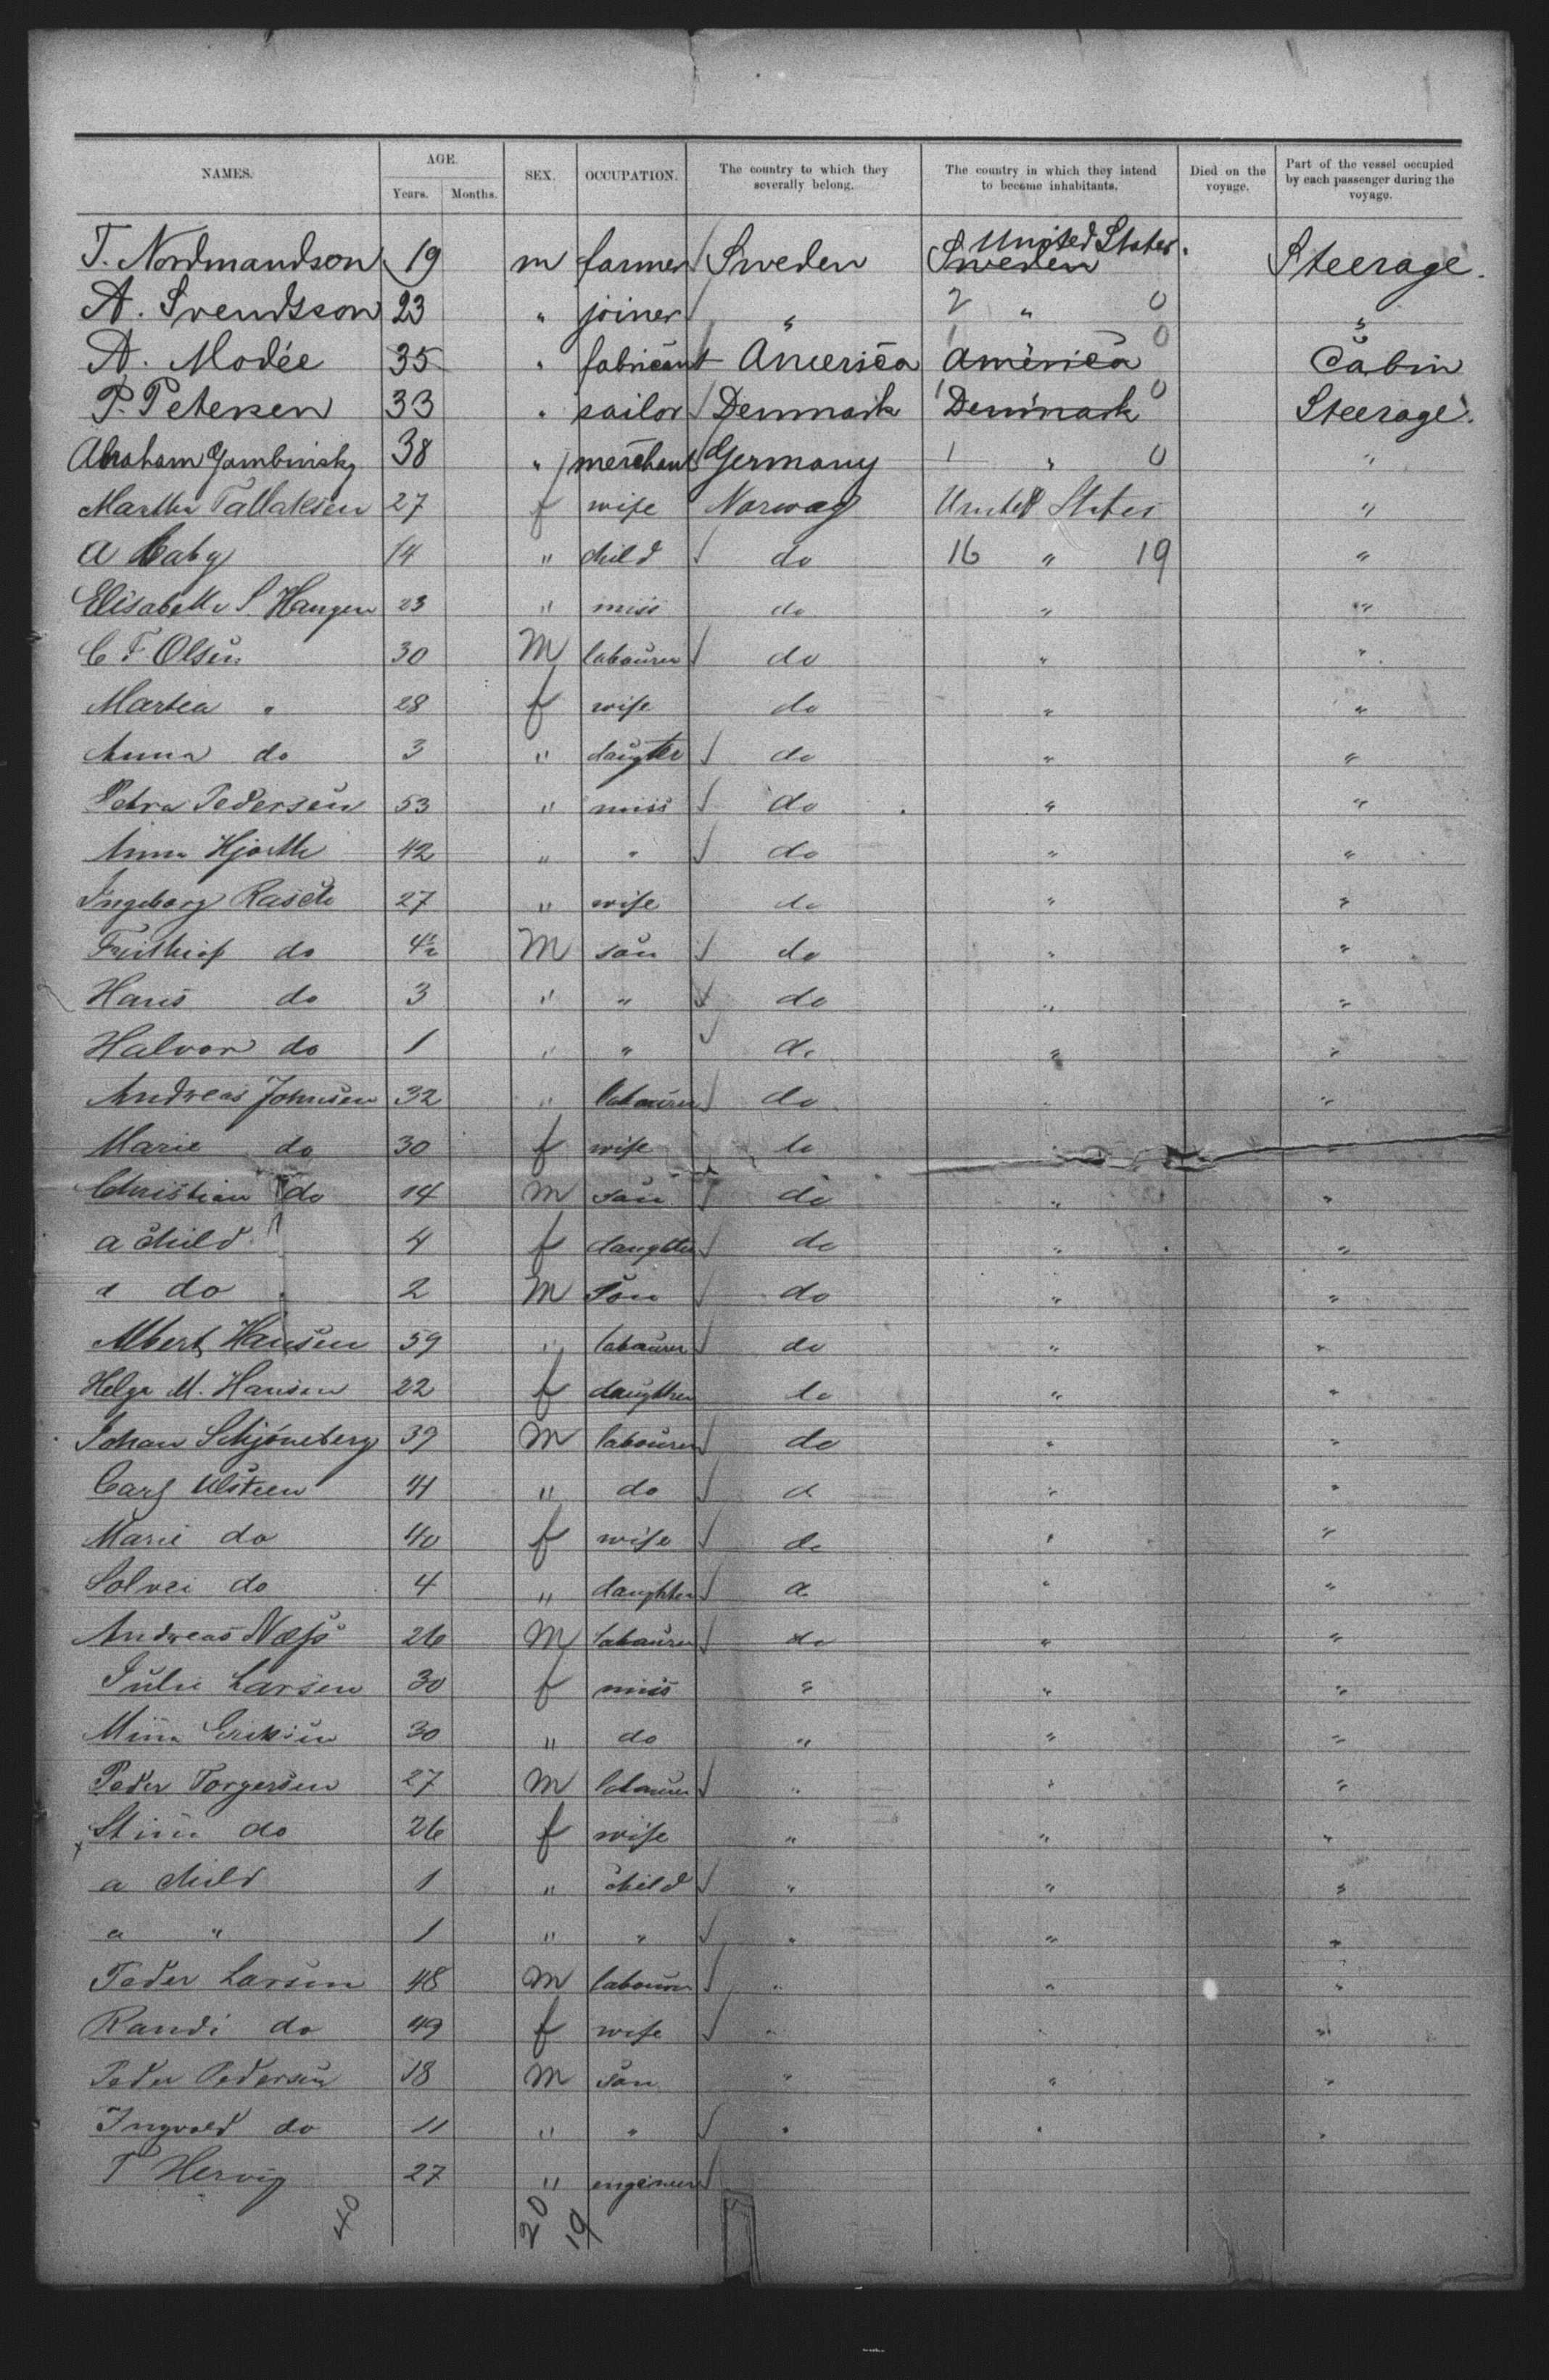 NAMES. AGE. Years. Months. SEX. OCCUPATION. The country to which they severally belong. The country in which they intend to become inhabitants. Died on the voyage. Part of the vessel occupied by each passenger during the voyage.
T. Nordmandson 19 m farmer Sweden Sweden United States. Steerage.
A. Svendsson 23 " joiner " 2 " 0 "
A. Modée 35 " fabricant America 1 America 0 Cabin
P. Petersen 33 " sailor Denmark 1 Denmark 0 Steerage.
Abraham Gambinsky 38 " merchant Germany 1 " 0 "
Martha Tallaksen 27 f wife Norway United States "
a baby 14 " child do 16 " 19 "
Elisabeth S. Haugen 23 " miss do " "
C F Olsen 30 M labourer do " "
Martea " 28 f wife do " "
Anna do 3 " daugter do " "
Petra Pedersen 53 " miss do " "
Anna Hjorth 42 " " do " "
Ingeborg Rasch 27 " wife do " "
Frithiof do 4½ M son do " "
Hans do 3 " " do " "
Halvor do 1 " " do " "
Andreas Johnsen 32 " labourer do " "
Marie do 30 f wife do " "
Christian do 14 M son do " "
a child 4 f daughter do " "
a do 2 M son do " "
Albert Hansen 59 " labourer do " "
Helga M. Hansen 22 f daugther do " "
Johan Schjöneberg 39 M labourer do " "
Carl Ulsteen 41 " do do " "
Marie do 40 f wife do " "
Solvei do 4 " daughter do " "
Andreas Næss 26 M labourer do " "
Julie Larsen 30 f miss " " "
Mina Eriksen 30 " do " " "
Peder Torgersen 27 M labourer " " "
Stine do 26 f wife " " "
a child 1 " child " " "
a " 1 " " " " "
Peder Larsen 48 M labourer " " "
Randi do 49 f wife " " "
Peder Pedersen 18 M son " " "
Ingvald do 11 " " " " "
T Hervig 27 " engineer
40 20 19